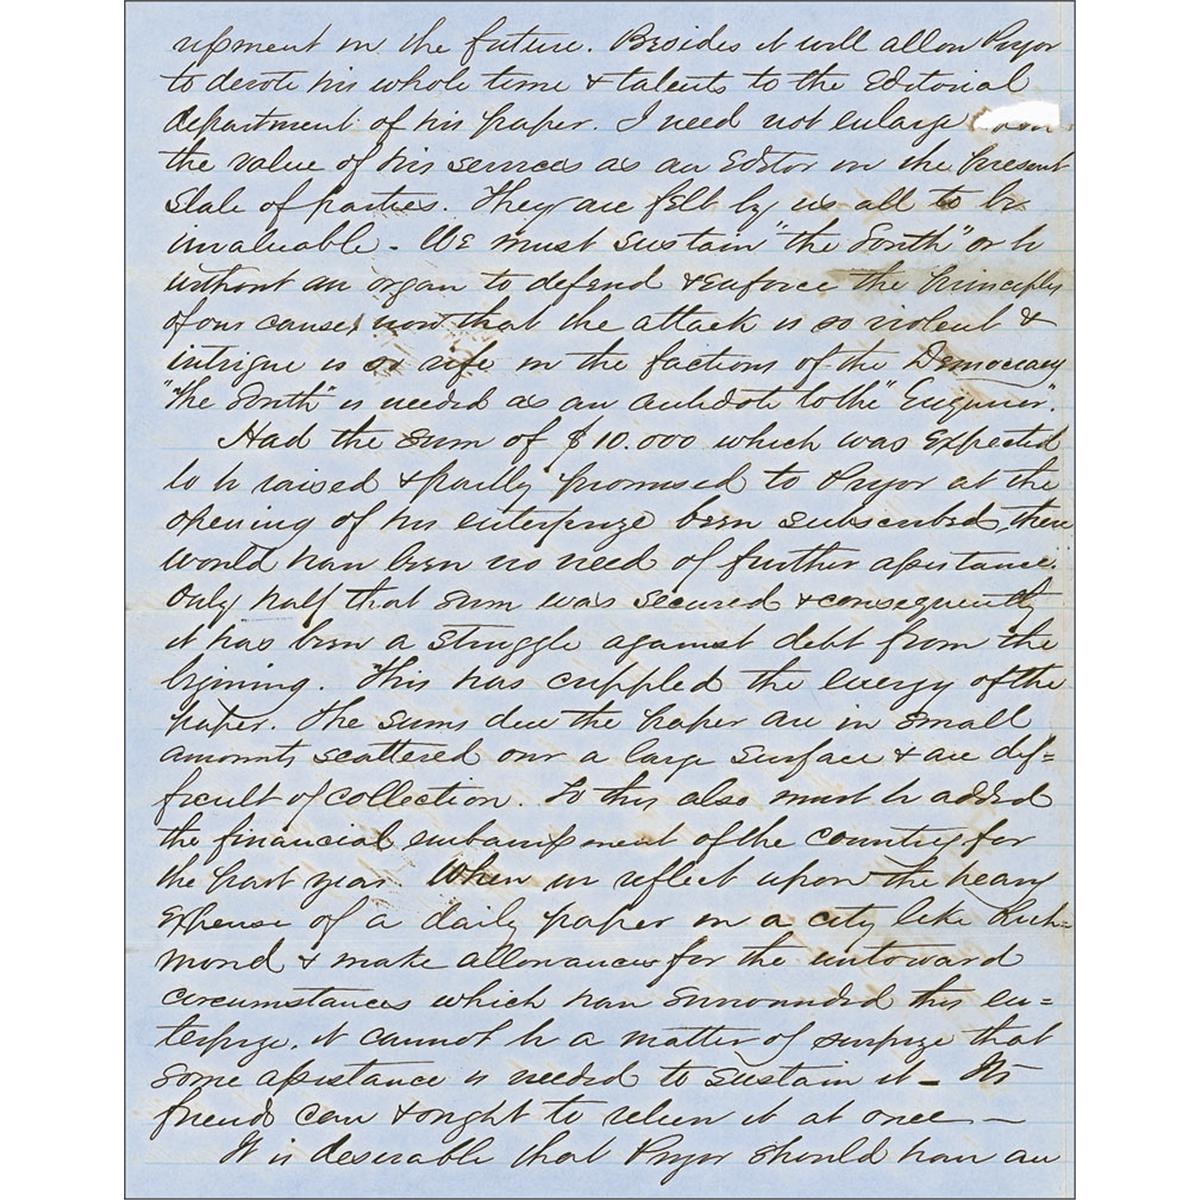 upment in the future. Besides it will allow Pryor
to devote his whole time & talents to the Editorial
department of his paper. I need not enlarge upon
the value of his services as an Editor in the present
state of parties. They are felt by us all to be
invaluable. We must sustain "the South" or be
without an organ to defend & enforce the principles
of our cause, now that the attack is so violent &
intrigue is so rife in the factions of the Democracy
"The South" is needed as an antidote to the "Enquirer".
Had the sum of $10.000 which was expected
to be raised & partly promised to Pryor at the
opening of his enterprize been subscribed, there
would have been no need of further assistance.
Only half that sum was secured & consequently
it has been a struggle against debt from the
begining. This has crippled the energy of the
paper. The sums due the paper are in small
amounts scattered over a large surface & are dif=
ficult of collection. To this also must be added
the financial embarrassment of the country for
the past year. When we reflect upon the heavy
expense of a daily paper in a city like Rich=
mond & make allowances for the untoward
circumstances which have surrounded this en=
terprize, it cannot be a matter of surprize that
some assistance is needed to sustain it – Its
friends can & ought to relieve it at once —
It is desirable that Pryor should have an